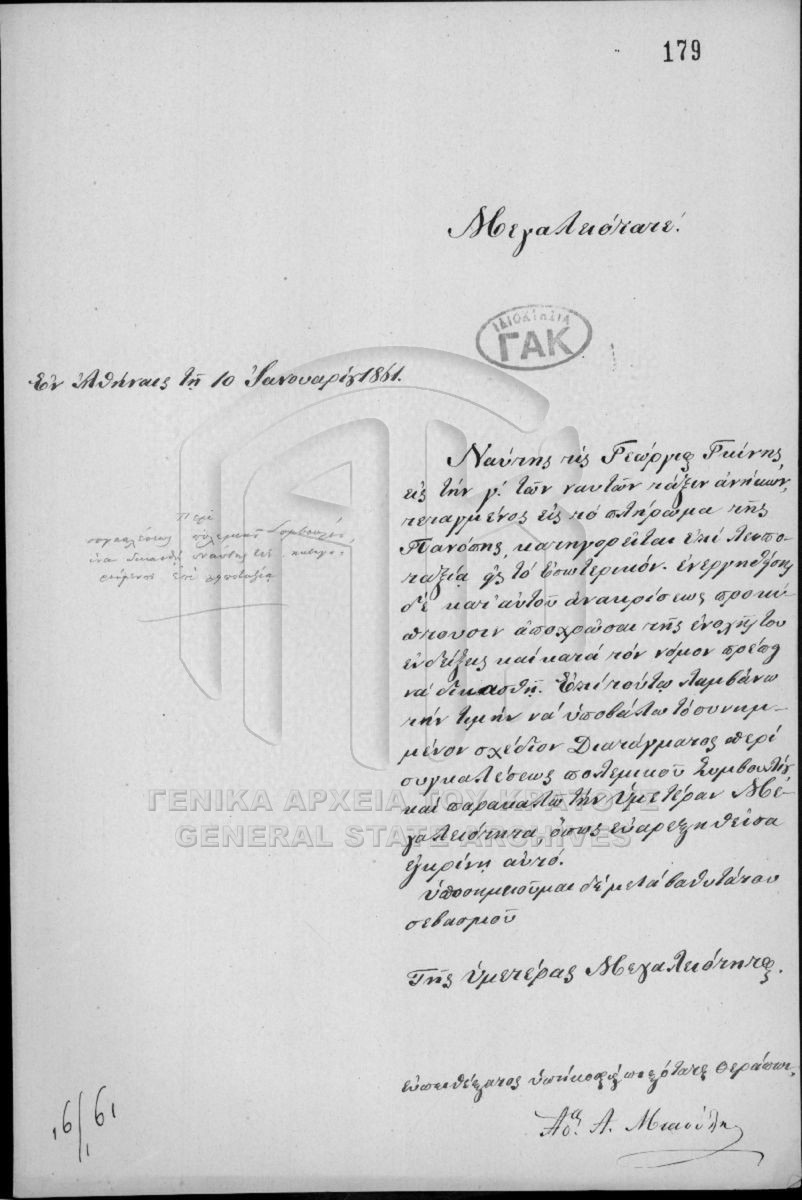 179
Μεγαλειότατε!
ΙΔΙΟΚΤΗΣΙΑ
ΓΑΚ
Ἐν Ἀθήναις τῇ 10 Ἰανουαρίου 1861.
Περὶ
συγκαλέσεως πολεμικοῦ Συμβουλίου,
ἵνα δικασθῇ ναύτης τις κατηγο-
ρούμενος ἐπὶ λιποταξίᾳ
Ναύτης τις Γεώργιος Γκίνης
εἰς τὴν γ'. τῶν ναυτῶν τάξιν ἀνήκων,
τεταγμένος εἰς τὸ πλήρωμα τῆς
κατηγορεῖται ἐπὶ λειπο-
ταξίᾳ εἰς τὸ ἐσωτερικόν. ἐνεργηθείσης
δὲ κατ' αὐτοῦ ἀνακρίσεως προκύ-
πτουσιν ἀποχρῶσαι τῆς ἐνοχῆς του
ἐνδείξεις καὶ κατὰ τὸν νόμον πρέπει
νὰ δικασθῇ. Ἐπὶ τούτῳ λαμβάνω
τὴν τιμὴν νὰ ὑποβάλω τὸ συνημ-
μένον σχέδιον Διατάγματος περὶ
συγκαλέσεως πολεμικοῦ Συμβουλίου
καὶ παρακαλῶ τὴν Ὑμετέραν Με-
γαλειότητα, ὅπως εὐαρεστηθεῖσα
ἐγκρίνῃ αὐτό.
ὑποσημειοῦμαι δὲ μετὰ βαθυτάτου
σεβασμοῦ
Τῆς Ὑμετέρας Μεγαλειότητος.
εὐπειθέστατος ὑπήκοος πιστότατος θεράπων,
Ἀθ. Α. Μιαούλης
16/1 61
ΓΕΝΙΚΑ ΑΡΧΕΙΑ ΤΟΥ ΚΡΑΤΟΥΣ
GENERAL STATE ARCHIVES